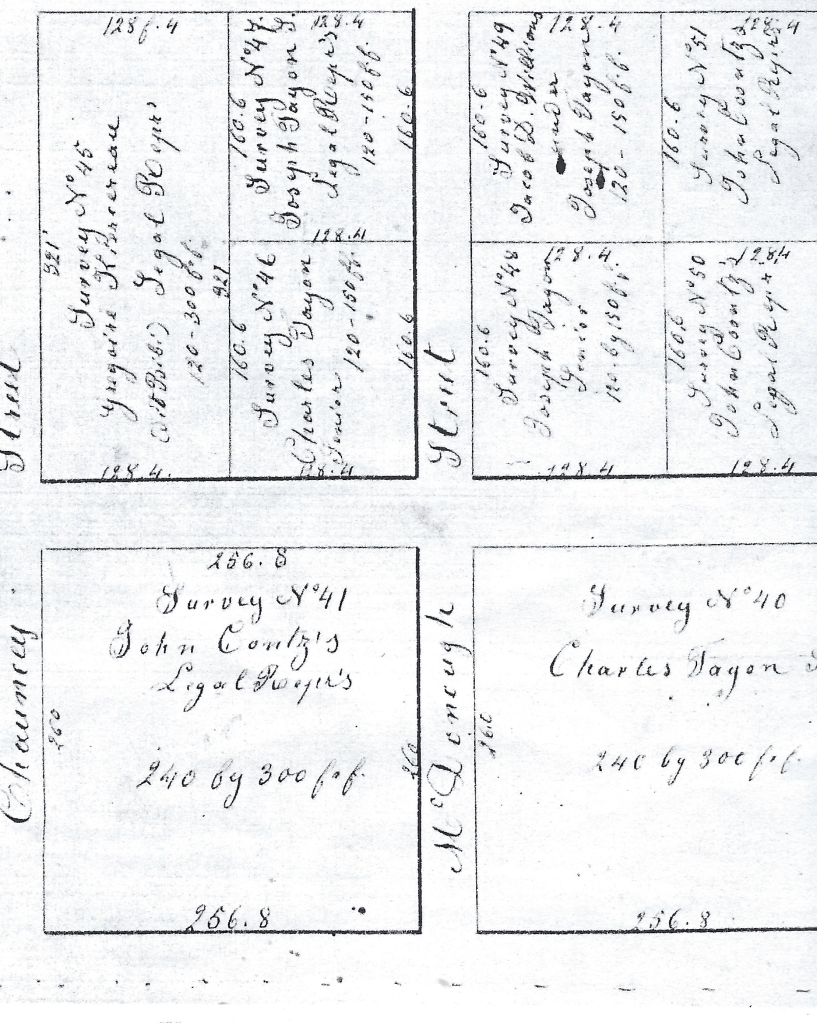 Street
128f.4
321'
Survey No 45
Legal Repr's
120-300 f.f.
321
128.4.
160.6
Survey No 47.
128.4
Joseph Tayon S.
Legal Repr's
120-150 f.f.
160.6
128.4
160.6
Survey No 46
Charles Tayon
Senior
120-150 f.f.
160.6
128.4
Street
160.6
Survey No 49
128.4
Jacob D. Williams
under
Joseph Tayon
120-150 f.f.
160.6
Survey No 51
128.4
John Coontz's
Legal Repr's
160.6
Survey No 48
128.4.
Joseph Tayon
Senior
120 by 150 f.f.
128.4
160.6
Survey No 50
1284
John Coontz's
Legal Repr's
128.4
Chauncey
256.8
Survey No 41
John Contz's
Legal Repr's
260
260
240 by 300 f.f.
256.8
McDonough
Survey No 40
Charles Tayon
260
240 by 300 f.f.
256.8